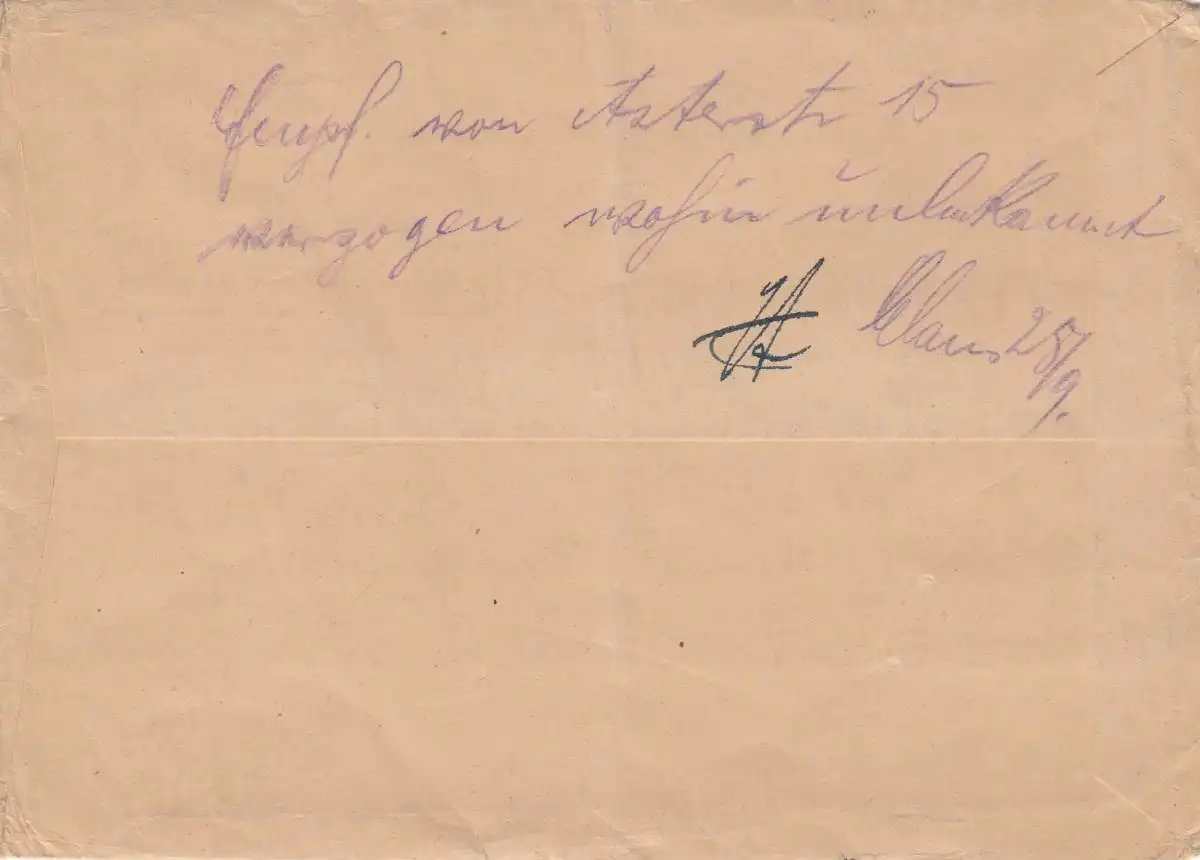 Empf. von Asterstr 15
verzogen wohin unbekannt
Claus 25/9.